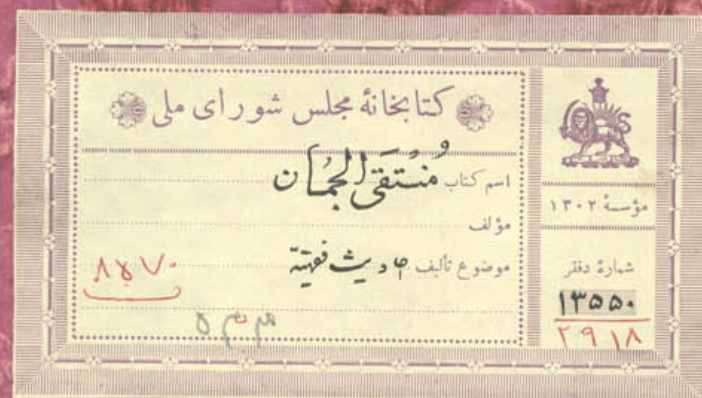 کتابخانهٔ مجلس شورای ملی
اسم کتاب مُنْتَقَی الجُمان
مؤلف
موضوع تألیف احادیث فقهیّة
۸۵۷۰
مؤسسهٔ ۱۳۰۲
شمارهٔ دفتر
۱۳۵۵۰
۲۹۱۸